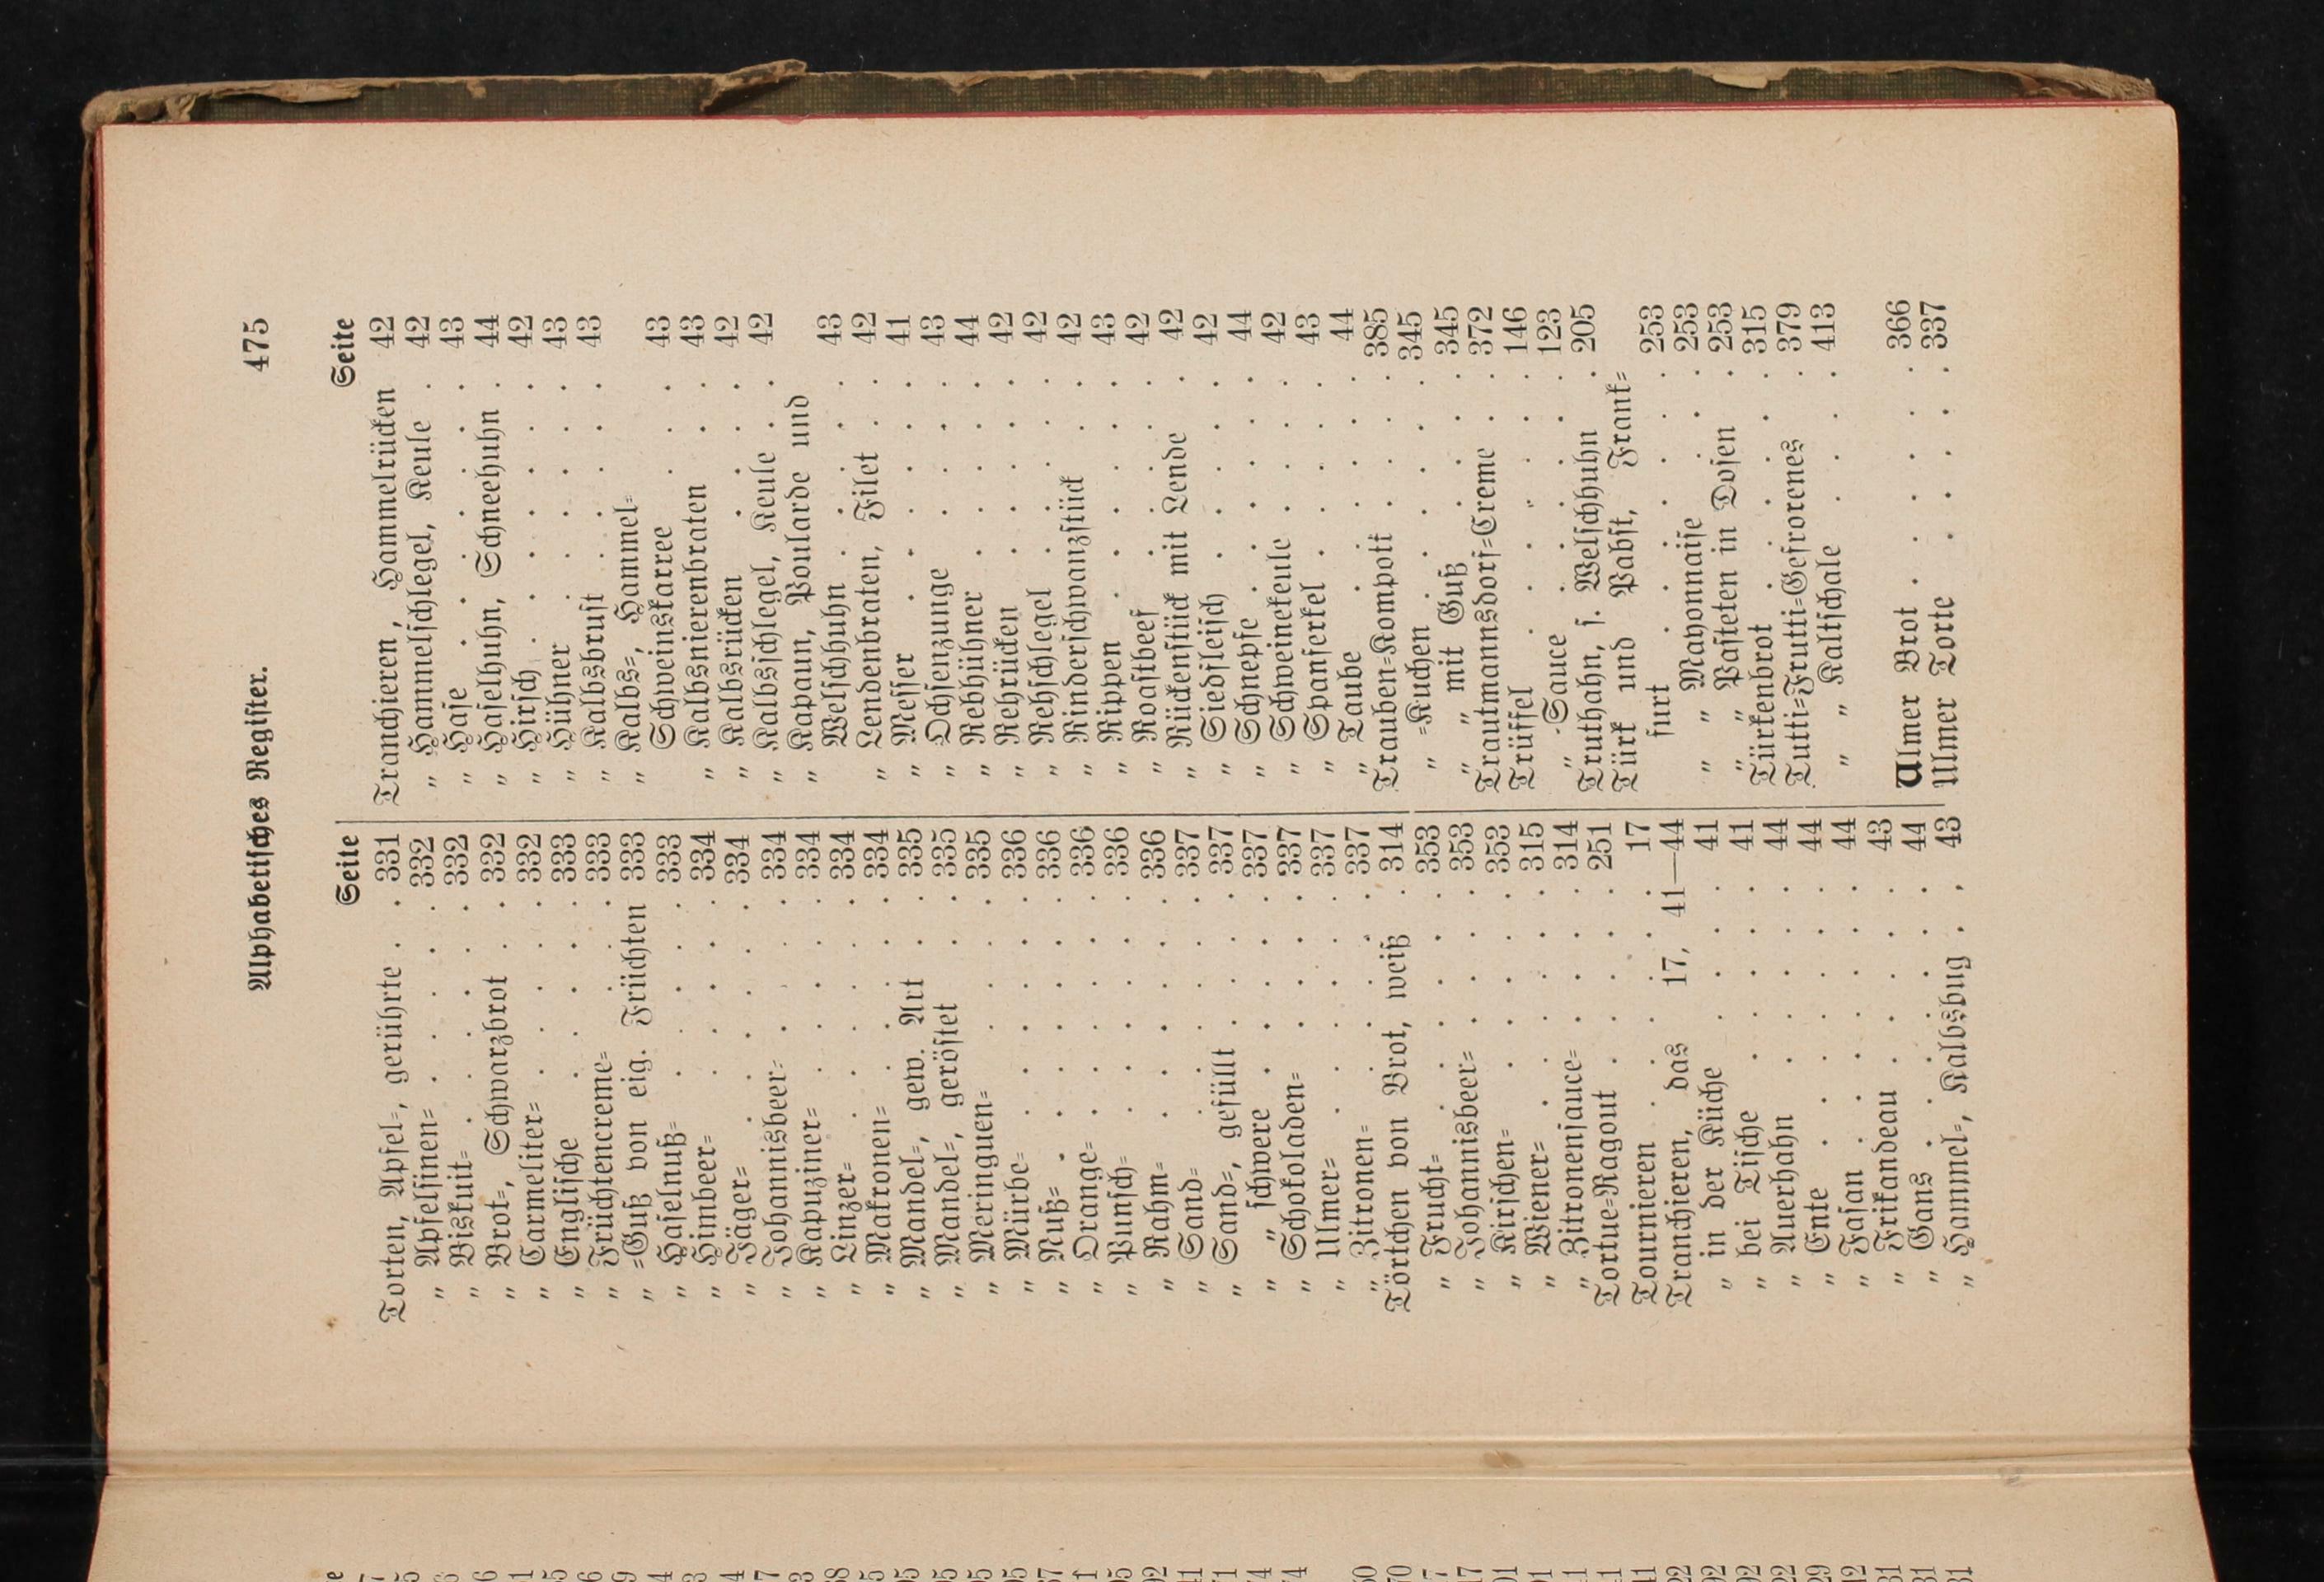 Alphabetisches Register. 475
Seite
Torten, Apfel-, gerührte . . 331
„ Apfelsinen- . . . . 332
„ Biskuit- . . . . . 332
„ Brot-, Schwarzbrot . . 332
„ Carmeliter- . . . . 332
„ Englische . . . . 333
„ Früchtencreme- . . . 333
„ -Guß von eig. Früchten 333
„ Haselnuß- . . . . 333
„ Himbeer- . . . . 334
„ Jäger- . . . . . 334
„ Johannisbeer- . . . 334
„ Kapuziner- . . . . 334
„ Linzer- . . . . . 334
„ Makronen- . . . . 334
„ Mandel-, gew. Art . . 335
„ Mandel-, geröstet . . 335
„ Meringuen- . . . . 335
„ Mürbe- . . . . . 336
„ Nuß- . . . . . . 336
„ Orange- . . . . . 336
„ Punsch- . . . . . 336
„ Rahm- . . . . . 336
„ Sand- . . . . . 337
„ Sand-, gefüllt . . . 337
„ „ schwere . . . . 337
„ Schokoladen- . . . . 337
„ Ulmer- . . . . . 337
„ Zitronen- . . . . . 337
Törtchen von Brot, weiß . . 314
„ Frucht- . . . . . 353
„ Johannisbeer- . . . 353
„ Kirschen- . . . . 353
„ Wiener- . . . . . 315
„ Zitronensauce- . . . 314
Tortue-Ragout . . . . . 251
Tournieren . . . . . . 17
Tranchieren, das 17, 41—44
„ in der Küche . . . . 41
„ bei Tische . . . . . 41
„ Auerhahn . . . . . 44
„ Ente . . . . . . 44
„ Fasan . . . . . . 44
„ Frikandeau . . . . 43
„ Gans . . . . . . 44
„ Hammel-, Kalbsbug . . 43
Seite
Tranchieren, Hammelrücken 42
„ Hammelschlegel, Keule . 42
„ Hase . . . . . . 43
„ Haselhuhn, Schneehuhn . 44
„ Hirsch . . . . . . 42
„ Hühner . . . . . 43
„ Kalbsbrust . . . . . 43
„ Kalbs-, Hammel-
Schweinskarree . . . 43
„ Kalbsnierenbraten . . 43
„ Kalbsrücken . . . . 42
„ Kalbsschlegel, Keule . . 42
„ Kapaun, Poularde und
Welschhuhn . . . . 43
„ Lendenbraten, Filet . . 42
„ Messer . . . . . . 41
„ Ochsenzunge . . . . 43
„ Rebhühner . . . . . 44
„ Rehrücken . . . . . 42
„ Rehschlegel . . . . . 42
„ Rinderschwanzstück . . 42
„ Rippen . . . . . . 43
„ Roastbeef . . . . . 42
„ Rückenstück mit Lende . 42
„ Siedfleisch . . . . . 42
„ Schnepfe . . . . . 44
„ Schweinekeule . . . . 42
„ Spanferkel . . . . . 43
„ Taube . . . . . . 44
Trauben-Kompott . . . . 385
„ -Kuchen . . . . . 345
„ „ mit Guß . . . . 345
Trautmannsdorf-Creme . . 372
Trüffel . . . . . . . 146
„ -Sauce . . . . . . 123
Truthahn, s. Welschhuhn . . 205
Türk und Pabst, Frank-
furt . . . . . . . 253
„ „ Mayonnaise . . . 253
„ „ Pasteten in Dosen . 253
Türkenbrot . . . . . . 315
Tutti-Frutti-Gefrorenes . . 379
„ „ Kaltschale . . . . 413
Ulmer Brot . . . . . . 366
Ulmer Torte . . . . . 337